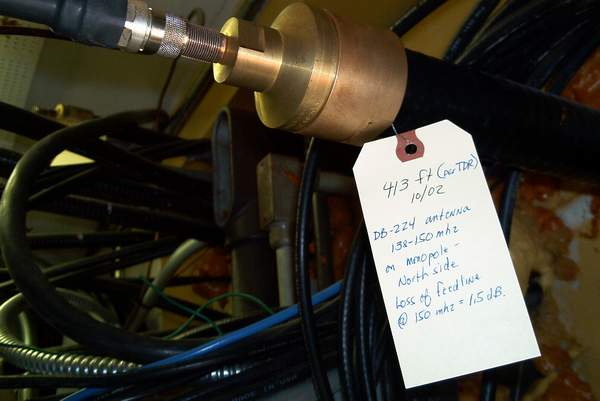 413 ft (per TDR)
10/02
DB-224 antenna
138-150 mhz
on monopole -
North side
Loss of feedline
@ 150 mhz = 1.5 dB.